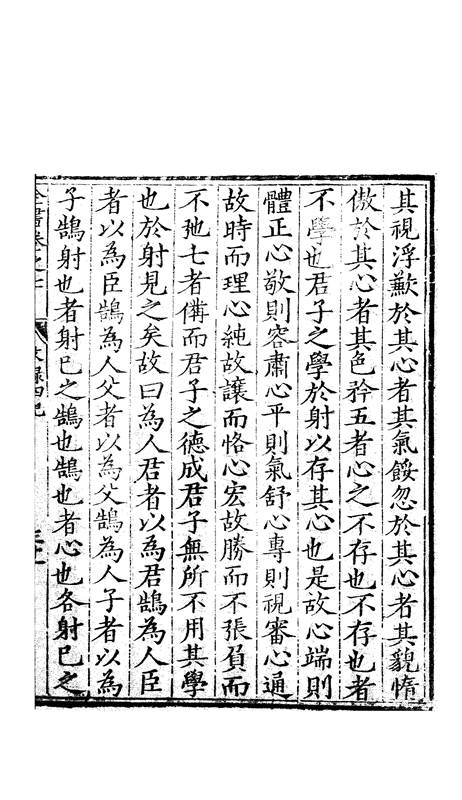 其視浮歉於其心者其氣餒忽於其心者其貌惰
傲於其心者其色矜五者心之不存也不存也者
不學也君子之學於射以存其心也是故心端則
體正心敬則容肅心平則氣舒心專則視審心通
故時而理心純故讓而恪心宏故勝而不張負而
不弛七者備而君子之德成君子無所不用其學
也於射見之矣故曰為人君者以為君鵠為人臣
者以為臣鵠為人父者以為父鵠為人子者以為
子鵠射也者射已之鵠也鵠也者心也各射已之
全書卷之七
文錄四記